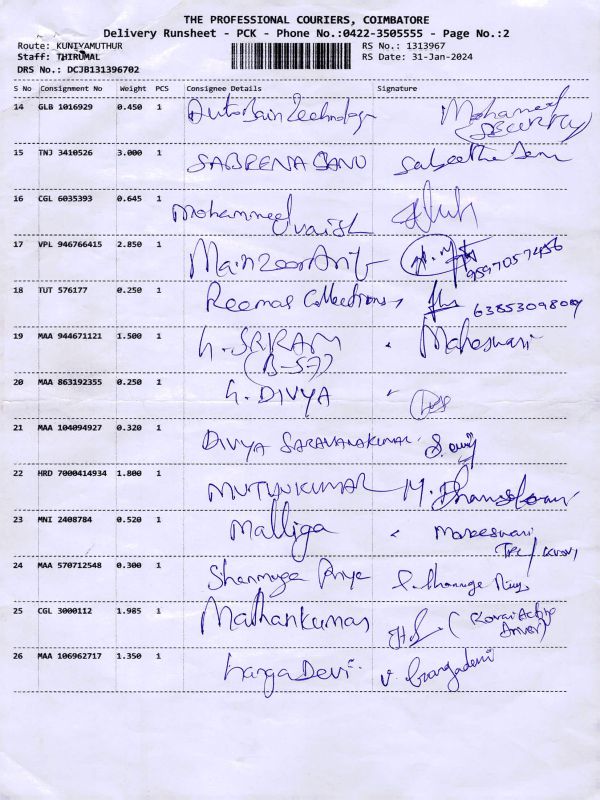 THE PROFESSIONAL COURIERS, COIMBATORE
Delivery Runsheet - PCK - Phone No.:0422-3505555 - Page No.:2
Route: KUNIYAMUTHUR RS No.: 1313967
Staff: THIRUMAL RS Date: 31-Jan-2024
DRS No.: DCJB131396702
S No Consignment No Weight PCS Consignee Details Signature
14 GLB 1016929 0.450 1 Mohameed
(SECURITY)
15 TNJ 3410526 3.000 1 SABREENA BANU
16 CGL 6035393 0.645 1 Mohammed
17 VPL 946766415 2.850 1 9597057456
18 TUT 576177 0.250 1 Reemas Collections
19 MAA 944671121 1.500 1 G. SRIRAM Maheswari
(B-57)
20 MAA 863192355 0.250 1 G. DIVYA
21 MAA 104094927 0.320 1 DIVYA SARAVANAKUMAR
22 HRD 7000414934 1.800 1 MUTHUKUMAR
23 MNI 2408784 0.520 1 Malliga Maheswari
24 MAA 570712548 0.300 1 Shanmuga Priya
25 CGL 3000112 1.985 1 Mathankumar
Driver)
26 MAA 106962717 1.350 1 GangaDevi V. Gangadevi